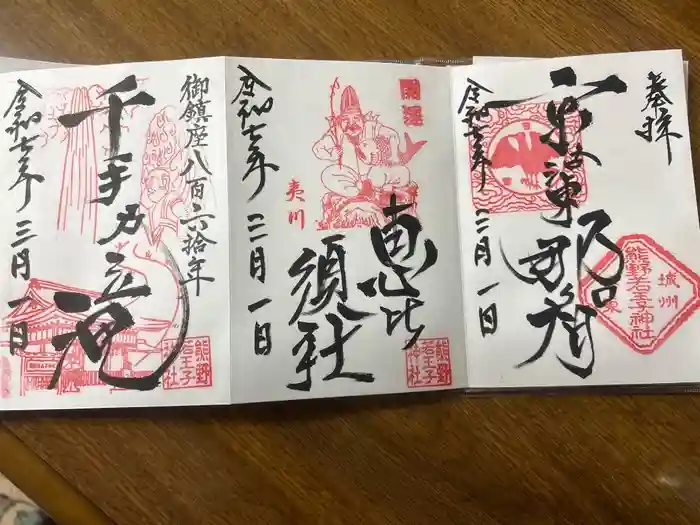 奉拝
京洛東
那智
令和七年三月一日
城州
熊野若王子神社
開運
夷川
恵比
須社
令和七年三月一日
熊野
若王子
神社
御鎮座八百六拾年
千手乃
令和七年三月一日
熊野
若王子
神社